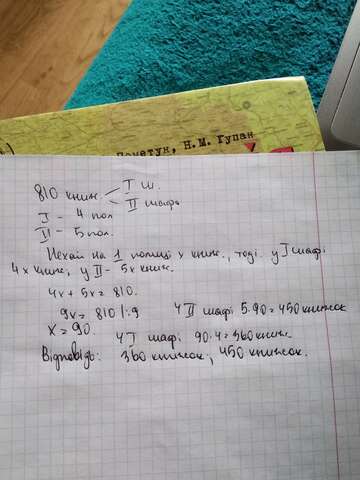 Пометун, Н.М. Гупан
810 книж. I ш.
II шафа
I - 4 пол
II - 5 пол.
Нехай на 1 полиці х книж., тоді у I шафі
4х книж, у II - 5х книж.
4х + 5х = 810.
9х = 810 |:9
У II шафі 5·90 = 450 книжок
х = 90.
У I шафі 90·4 = 360 книж.
Відповідь: 360 книжок; 450 книжок.